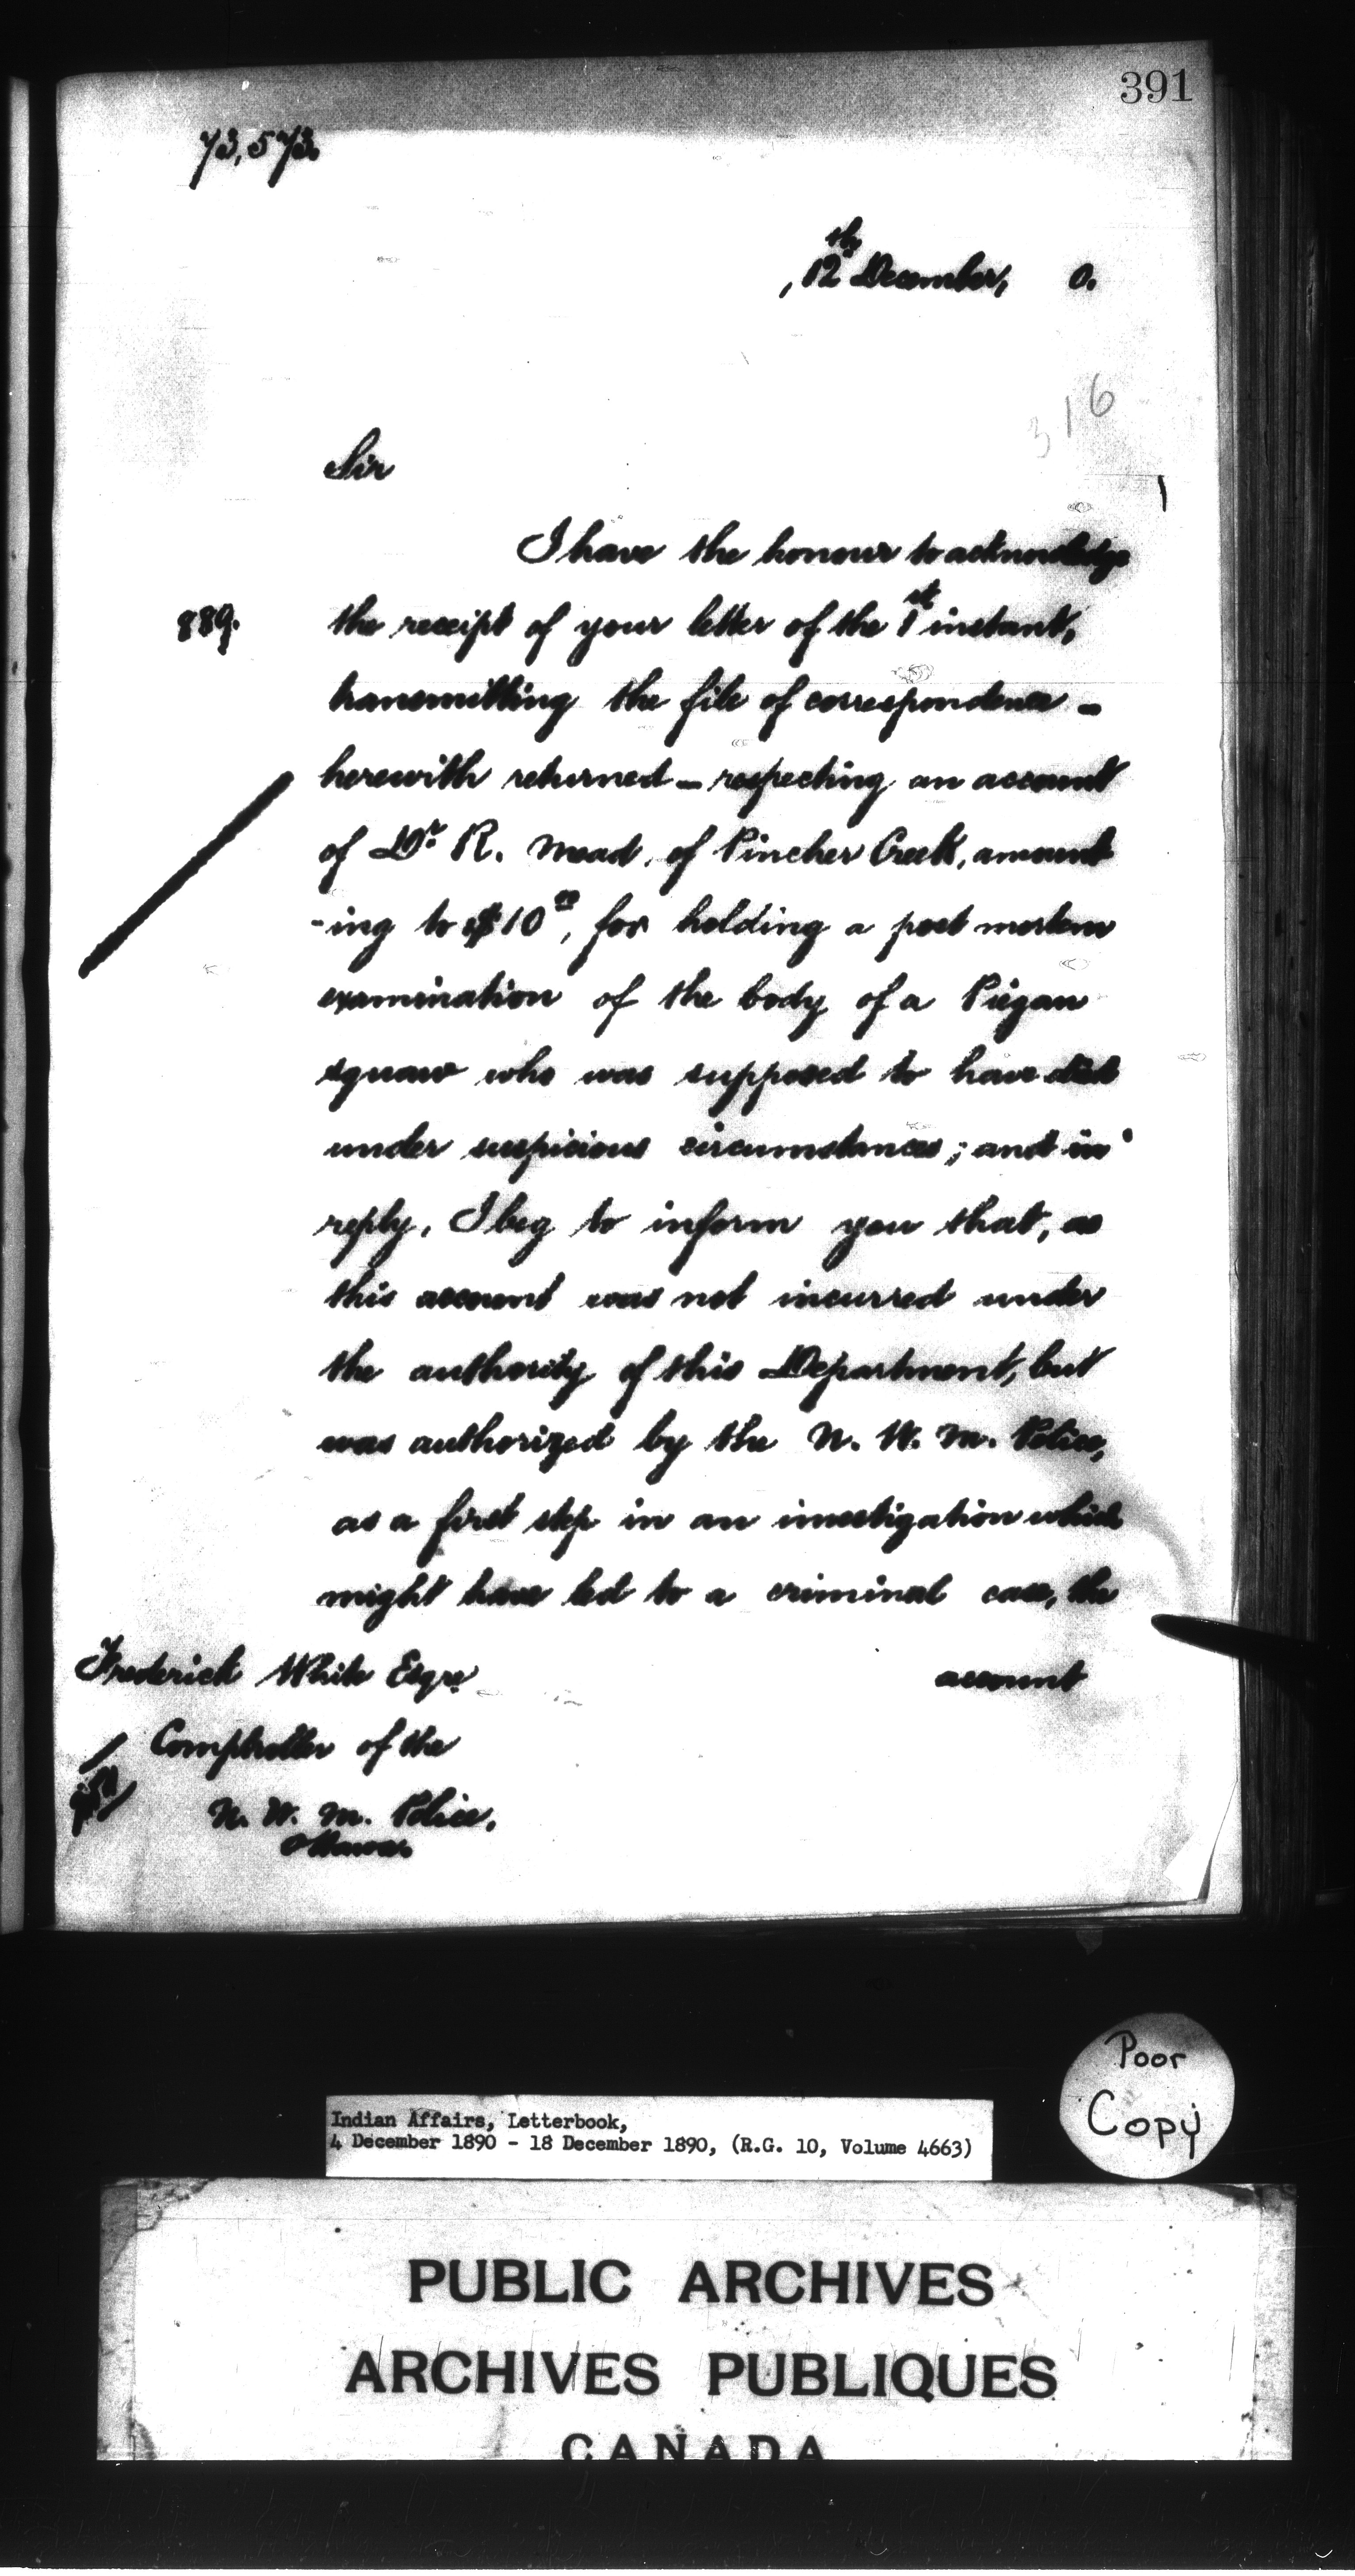 391
73,573.
, 12th December, 0.
316
Sir
I have the honour to acknowledge
889. the receipt of your letter of the 1st instant,
transmitting the file of correspondence –
herewith returned – respecting an account
of Dr. R. Mead, of Pincher Creek, amount
-ing to $10 00, for holding a post mortem
examination of the body of a Piegan
squaw who was supposed to have died
under suspicious circumstances; and in
reply, I beg to inform you that, as
this account was not incurred under
the authority of this Department, but
was authorized by the N. W. M. Police,
as a first step in an investigation which
might have led to a criminal case, the
account
Frederick White Esqre
Comptroller of the
N. W. M. Police,
Ottawa.
Poor
Copy
Indian Affairs, Letterbook,
4 December 1890 - 18 December 1890, (R.G. 10, Volume 4663)
PUBLIC ARCHIVES
ARCHIVES PUBLIQUES
CANADA